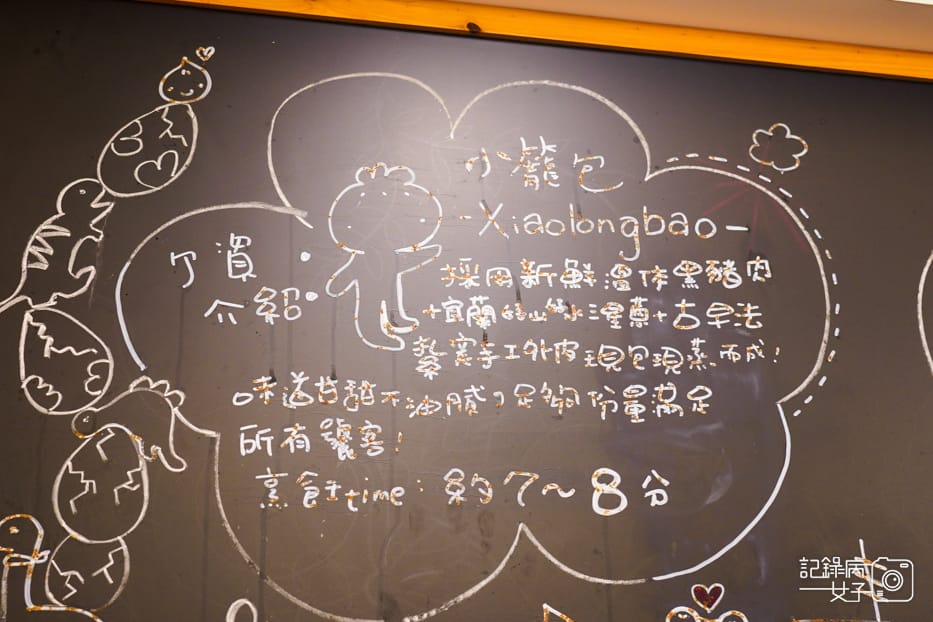 小籠包
-Xiaolongbao-
資
介紹:
採用新鮮溫体黑豬肉
+宜蘭的
+古早法
紮實手工外皮現包現蒸而成!
味道甘甜不油膩,足夠份量滿足
所有饕客!
烹飪time:約7~8分
記錄病
女子